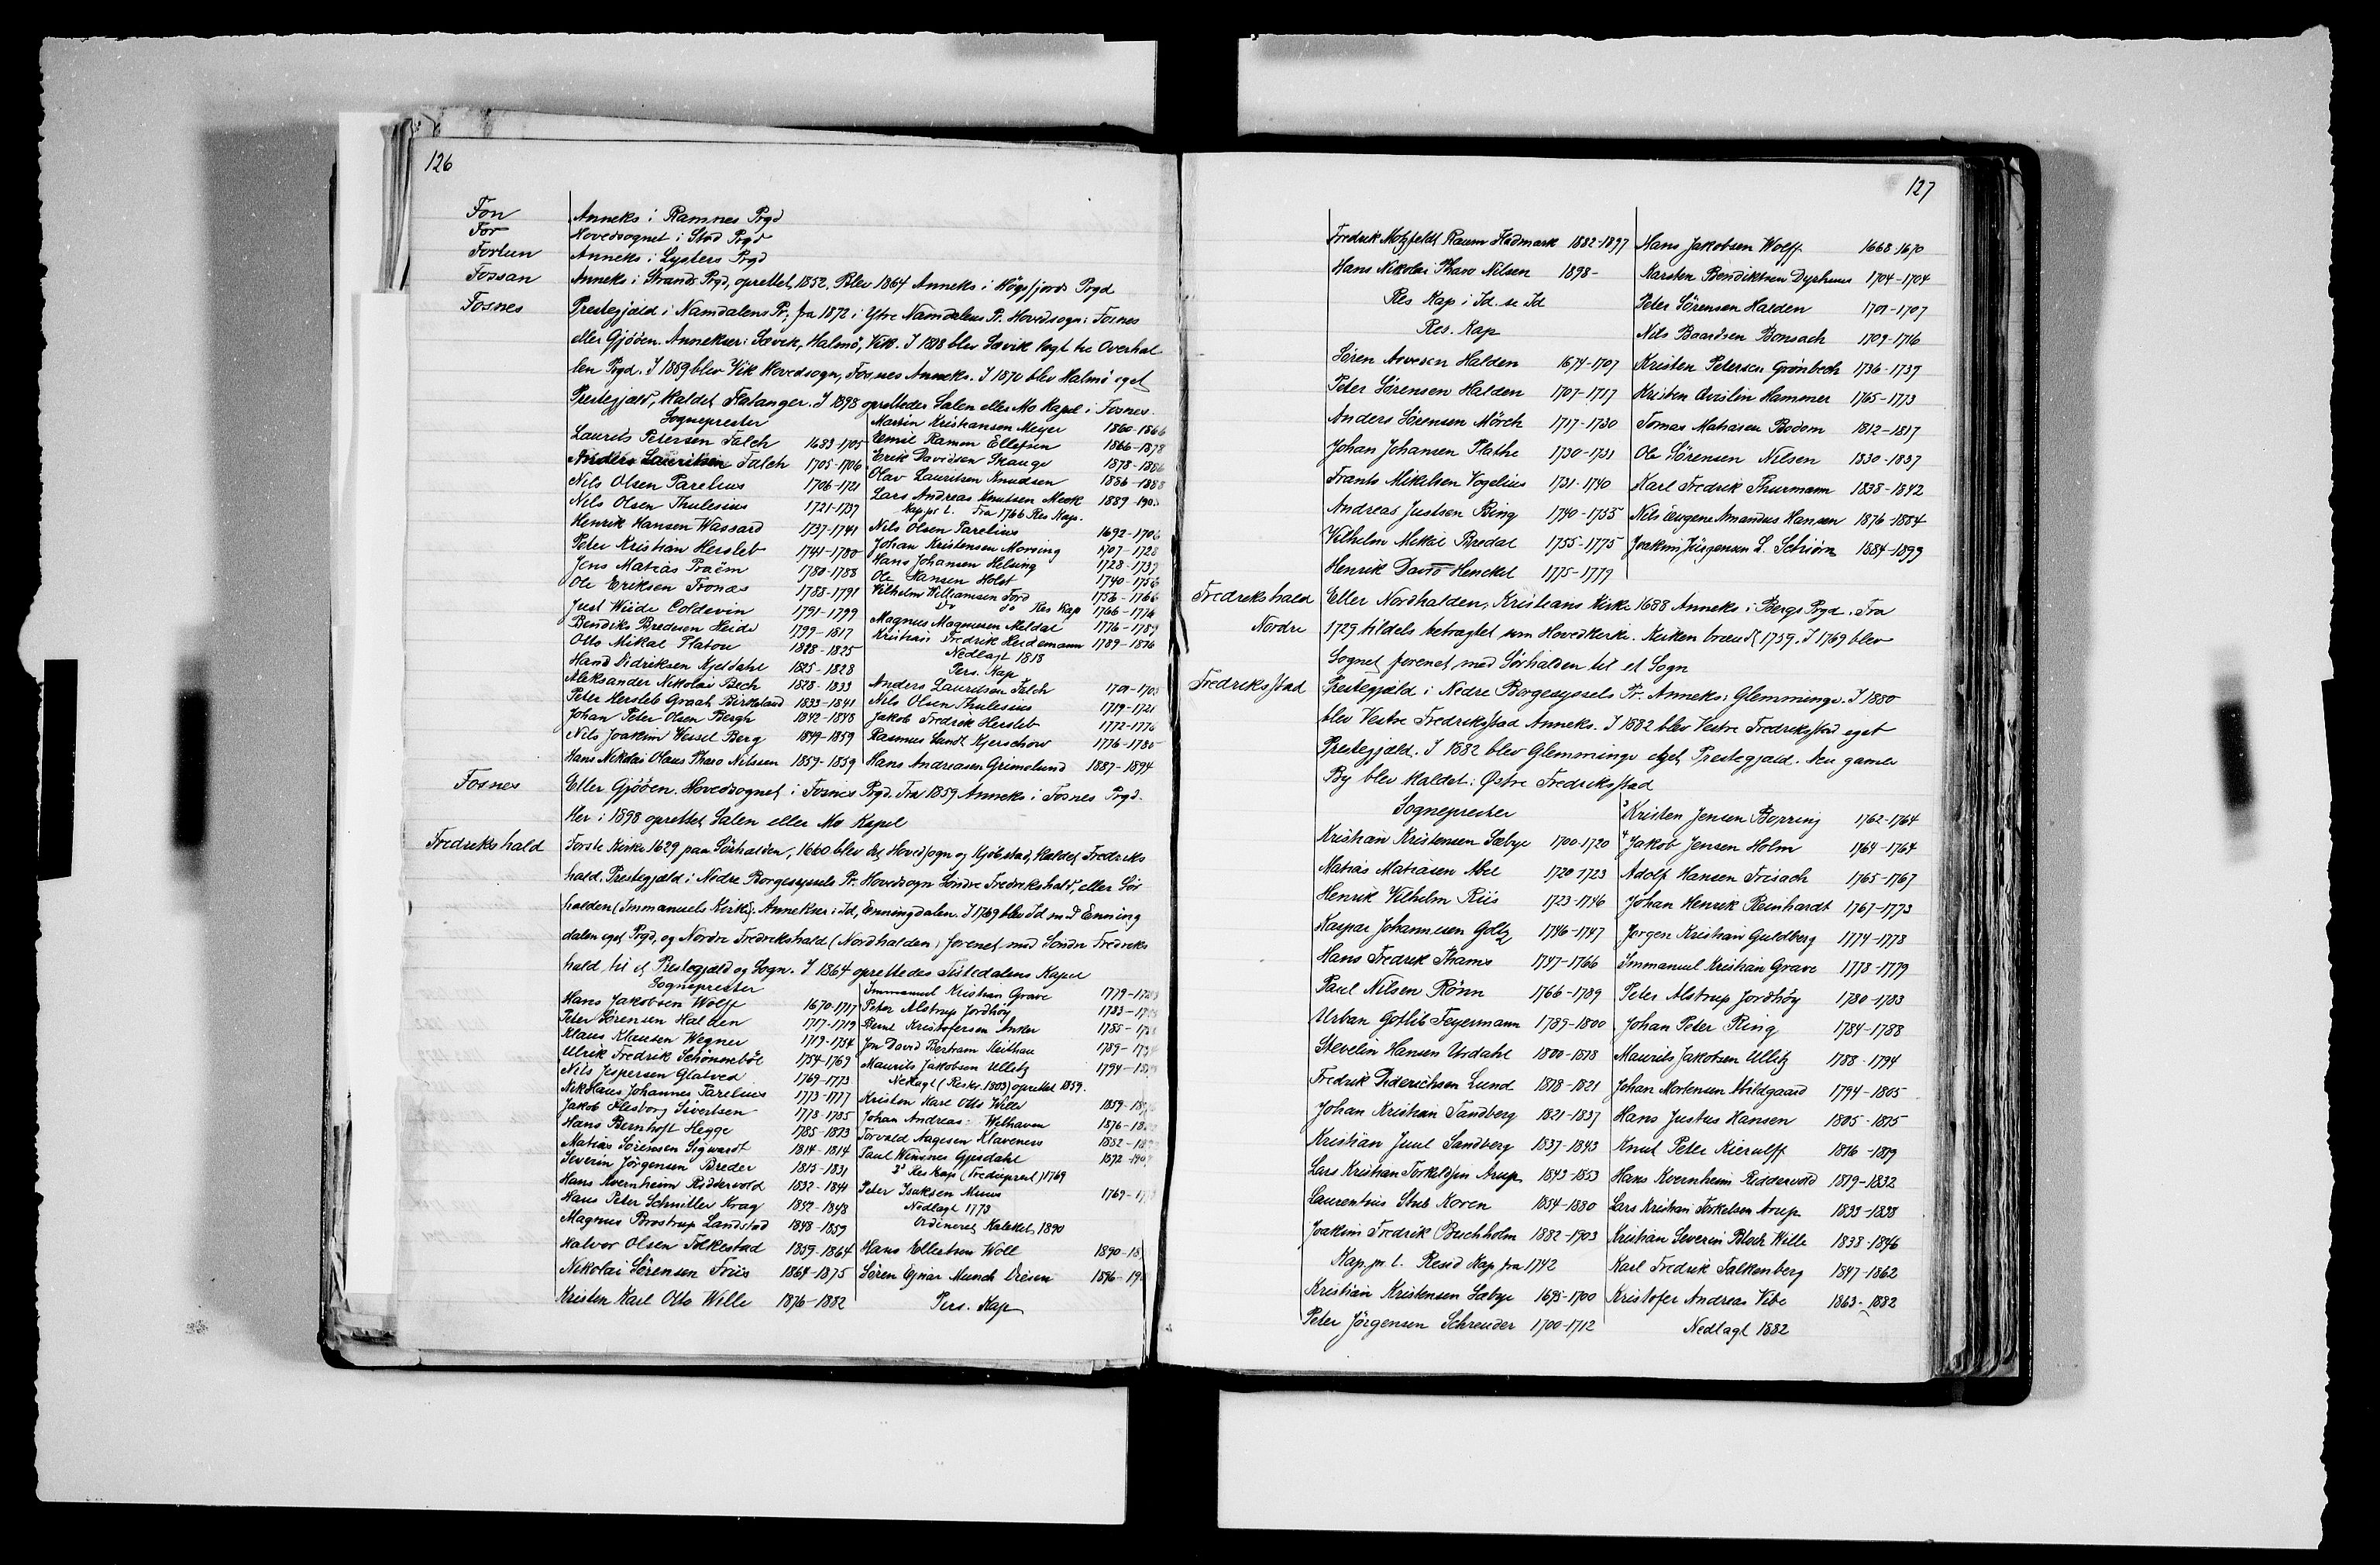 126
Fon Anneks i Ramnes Prgd
For Hovedsognet i Stod Prgd
Fortun Anneks i Lysters Prgd
Fossan Anneks i Strands Prgd, oprettet 1852. Blev 1864 Anneks i Høgsfjords Prgd
Fosnes Prestegjæld i Namdalens Pr; fra 1872 i Ytre Namdalens Pr. Hovedsogn: Fosnes
eller Gjöðen. Annekser: Sævik, Halmö, Vik. I 1838 blev Sævik lagt til Overhal-
len Prgd. I 1859 blev Vik Hovedsogn, Fosnes Anneks. I 1870 blev Halmö eget
Prestegjæld, kaldet Flatanger. I 1898 oprettedes Salen eller Mo Kapel i Fosnes.
Sogneprester
Laurits Petersen Falch 1683-1705
Anders Lauritsen Falch 1705-1706
Nils Olsen Parelius 1706-1721
Nils Olsen Thulesius 1721-1737
Henrik Hansen Wassard 1737-1741
Peter Kristian Hersleb 1741-1780
Jens Matias Praëm 1780-1788
Ole Eriksen Tronæs 1788-1791
Just Wiide Coldevin 1791-1799
Bendiks Bredesen Heide 1799-1817
Otto Mikal Platou 1818-1825
Hans Didriksen Kjeldahl 1825-1828
Aleksander Nikolai Bech 1828-1833
Peter Hersleb Graah Birkeland 1833-1841
Johan Peter Olsen Bergh 1842-1848
Nils Joakim Wessel Berg 1849-1859
Hans Nikolai Olaus Tharo Nilssen 1859-1859
Martin Kristiansen Meyer 1860-1866
Emil Ramm Ellefsen 1866-1878
Erik Davidsen Skauge 1878-1886
Olav Lauritsen Amundsen 1886-1888
Lars Andreas Knutsen Meek 1889-190
Kap. pr. l. Fra 1766 Res Kap.
Nils Olsen Parelius 1692-1706
Johan Kristensen Morsing 1707-1728
Hans Johansen Helsing 1728-1739
Ole Hansen Holst 1740-1756
Vilhelm Williamsen Ford 1756-1766
Do do Res Kap 1766-1776
Magnus Magnusen Meldal 1776-1789
Kristian Fredrik Heidemann 1789-1816
Nedlagt 1818
Pers. Kap
Anders Lauritsen Falch 1701-1705
Nils Olsen Thulesius 1719-1721
Jakob Fredrik Hersleb 1772-1776
Rasmus Sandt Kjerschow 1776-1780
Hans Andreasen Grimelund 1887-1894
Fosnes Eller Gjöðen. Hovedsognet i Fosnes Prgd. Fra 1859 Anneks i Fosnes Prgd.
Her i 1898 oprettet Salen eller Mo Kapel
Fredrikshald Første Kirke 1629 paa Sörhalden, 1660 blev det Hovedsogn og Kjöbstad, kaldet Fredriks
hald. Prestegjæld i Nedre Borgesyssels Pr. Hovedsogn Söndre Fredrikshald, eller Sör-
halden (Immanuels Kirke). Annekser: Id, Enningdalen. I 1769 blev Id med Enning
dalen eget Prgd, og Nordre Fredrikshald (Nordhalden) forenet med Söndre Fredriks
hald til et Prestegjæld og Sogn. I 1864 oprettedes Tistedalens Kapel
Sogneprester
Hans Jakobsen Wolff 1670-1717
Peter Sörensen Halden 1717-1719
Klaus Klausen Wegner 1719-1754
Ulrik Fredrik Schönneböl 1754-1769
Nils Jespersen Glatved 1769-1773
Nikolaus Johannes Parelius 1773-1777
Jakob Flesborg Sivertsen 1778-1785
Hans Bernhoft Hegge 1785-1813
Matias Sörensen Sigwardt 1814-1814
Severin Jörgensen Breder 1815-1831
Hans Kvernheim Riddervold 1832-1841
Hans Peter Schnitler Krag 1842-1848
Magnus Brostrup Landstad 1848-1859
Halvor Olsen Folkestad 1859-1864
Nikolai Sörensen Friis 1864-1875
Kristen Karl Otto Wille 1876-1882
Immanuel Kristian Grave 1779-178
Peter Alstrup Jordhöy 1783-17
Bernt Kristofersen Anker 1785-17
Jon David Bertram Keithau 1789-179
Maurits Jakobsen Ulletz 1794-18
Nedlagt (Reskr. 1803) oprettet 1859.
Kristen Karl Otto Wille 1859-18
Johan Andreas Welhaven 1876-18
Torvald Aagesen Klaveness 1882-18
Paul Wensnes Gjesdahl 1892-190
3d Res Kap (Tredieprest) 1769
Peter Isaksen Muus 1769-17
Nedlagt 1773
Ordineret Kateket 1890
Hans Ellertsen Woll 1890-18
Sören Ejnar Munch Diesen 1896-19
Pers. Kap
127
Fredrik Motzfeldt Raum Hadmark 1882-1897
Hans Nikolai Tharo Nilsen 1898-
Res Kap i Id se Id
Res. Kap
Sören Andersen Halden 1674-1707
Peter Sörensen Halden 1707-1717
Anders Sörensen Mörch 1717-1730
Johan Johansen Plathe 1730-1731
Frants Mikelsen Vogelius 1731-1740
Andreas Justsen Bing 1740-1755
Vilhelm Mikal Bredal 1755-1775
Henrik David Henckel 1775-1779
Hans Jakobsen Wolff 1668-1670
Karsten Bendiktsen Dyrhuus 1704-1704
Peter Sörensen Halden 1701-1707
Nils Baardsen Bonsach 1709-1716
Kristen Petersen Grönbech 1736-1737
Kristen Qvislin Hammer 1765-1773
Tomas Matiasen Bodom 1812-1817
Ole Sörensen Nilsen 1830-1837
Karl Fredrik Thurmann 1838-1842
Nils Eugene Amandus Hansen 1876-1884
Joakim Jürgensen L. Schiørn 1884-1899
Fredrikshald Eller Nordhalden, Kristians Kirke 1688 Anneks i Bergs Prgd. Fra
Nordre 1729 tildels betragtet som Hovedkirke. Kirken brændt 1759. I 1769 blev
Sognet forenet med Sörhalden til et Sogn
Fredriksstad Prestegjæld i Nedre Borgesyssels Pr. Anneks: Glemminge. I 1880
blev Vestre Fredriksstad Anneks. I 1882 blev Vestre Fredriksstad eget
Prestegjæld. I 1882 blev Glemminge eget Prestegjæld. Den gamle
By blev kaldet: Østre Fredriksstad
Sogneprester
Kristian Kristensen Sæbye 1700-1720
Matias Matiasen Abel 1720-1723
Henrik Vilhelm Riis 1723-1746
Kaspar Johannesen Goltz 1746-1747
Hans Fredrik Thams 1747-1766
Paul Nilsen Rönn 1766-1789
Urban Gotlib Feyermann 1789-1800
Stevelin Hansen Urdahl 1800-1818
Fredrik Diderichsen Lund 1818-1821
Johan Kristian Tandberg 1821-1837
Kristian Juul Sandberg 1837-1843
Lars Kristian Torkeldsen Arup 1843-1853
Laurentius Stub Koren 1854-1880
Joakim Fredrik Buchholm 1882-1903
Kap. pr. l. Resid Kap fra 1742
Kristian Kristensen Sæbye 1695-1700
Peter Jörgensen Schreuder 1700-1712
3 Kristen Jensen Borring 1762-1764
4 Jakob Jensen Holm 1764-1764
Adolf Hansen Frisach 1765-1767
Johan Henrik Reinhardt 1767-1773
Jørgen Kristian Guldberg 1774-1778
Immanuel Kristian Grave 1778-1779
Peter Alstrup Jordhöy 1780-1783
Johan Peter Ring 1784-1788
Maurits Jakobsen Ulletz 1788-1794
Johan Mortensen Hildgaard 1794-1805
Hans Justus Hansen 1805-1815
Knut Peter Kierulff 1816-1819
Hans Kvernheim Riddervold 1819-1832
Lars Kristian Torkelsen Arup 1833-1838
Kristian Severin Bloch Wille 1838-1846
Karl Fredrik Falkenberg 1847-1862
Kristofer Andreas Vibe 1863-1882
Nedlagt 1882